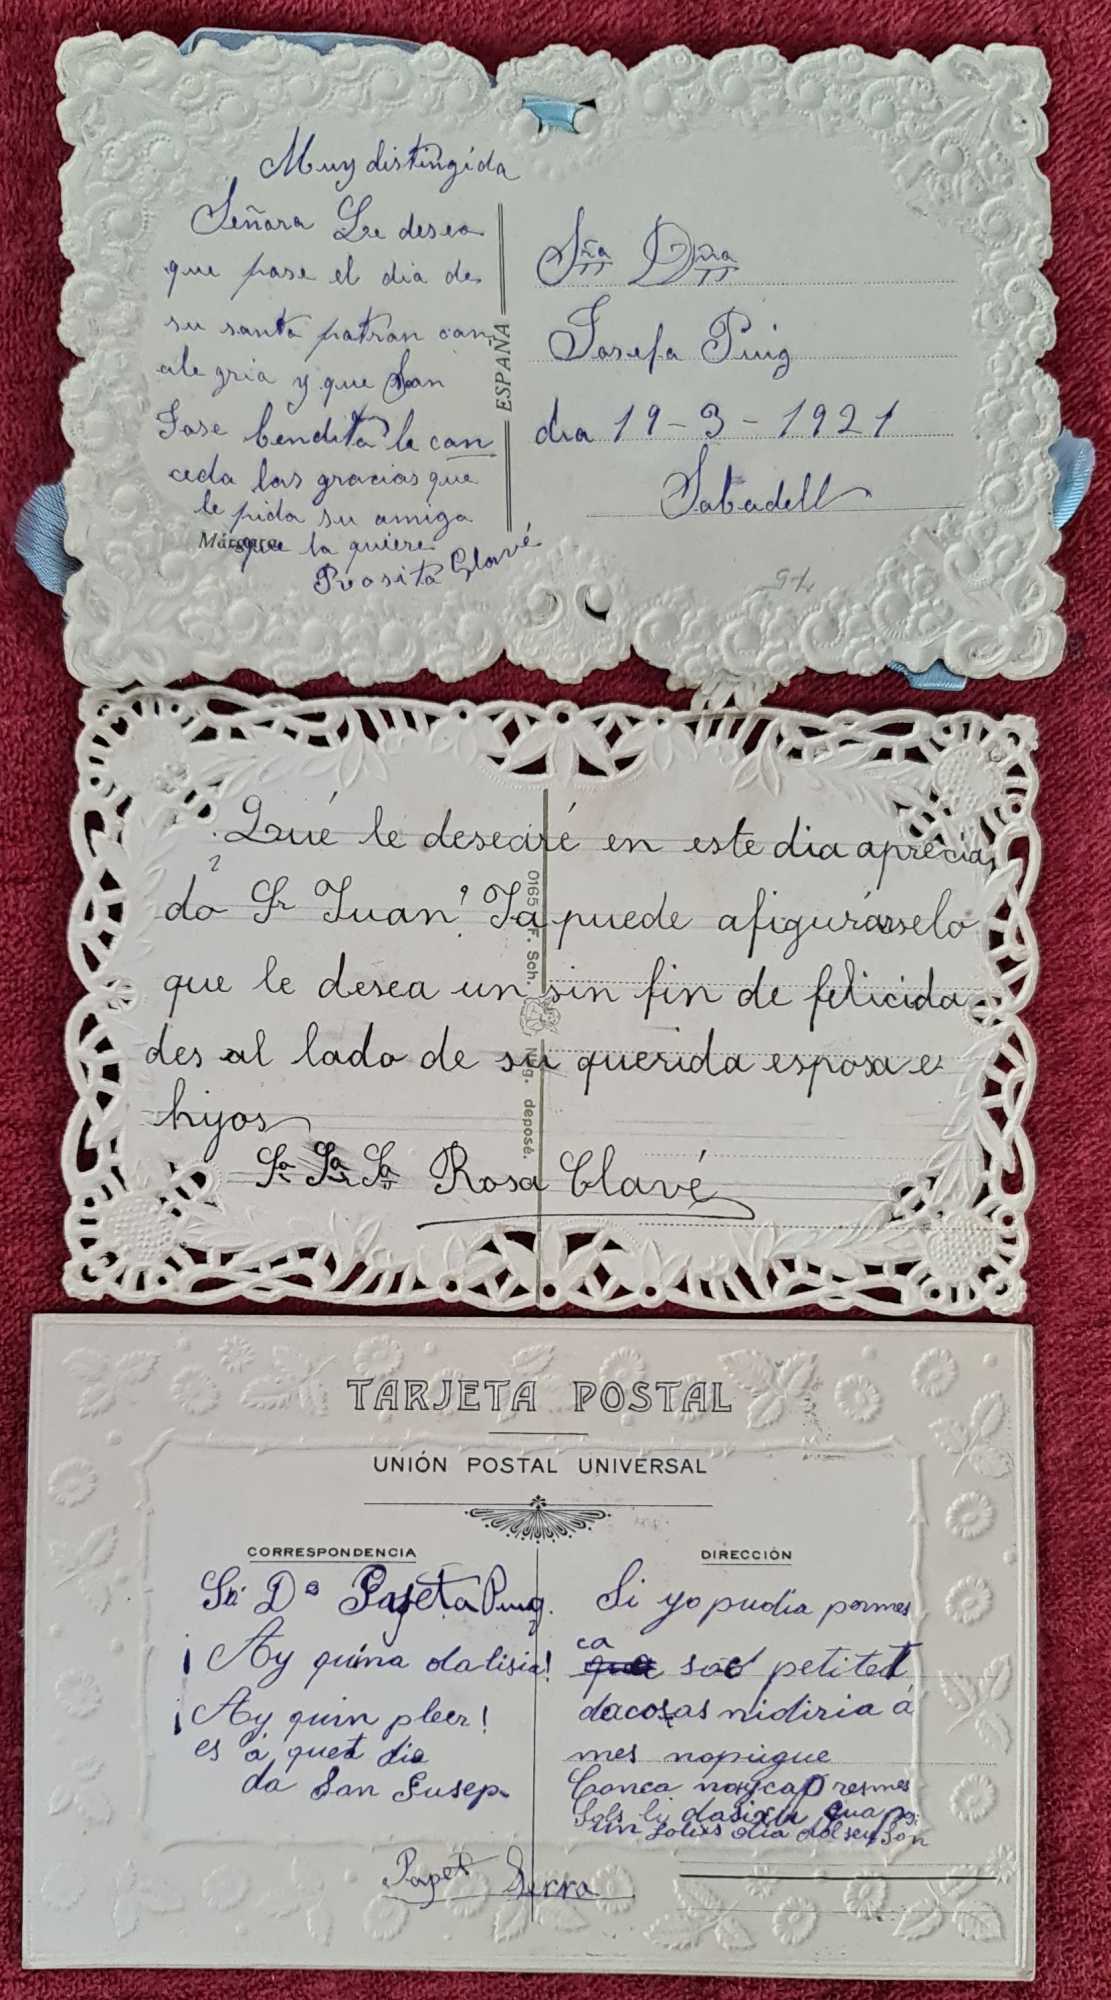 Muy distingida
Señora Le desea
que pase el dia de
su santo patron con
alegria y que San
Jose bendito le con
ceda las gracias que
le pida su amiga
que la quiere
Rosita Clavé
Márgara
ESPAÑA
Sra Dña
Josefa Puig
dia 19-3-1921
Sabadell
75
¿Qué le desearé en este dia aprecia
do Sr Juan? Ya puede afigurárselo
que le desea un sin fin de felicida
des al lado de su querida esposa e
hijos
Rosa Clavé
0165 F. Sch. N. deposé.
TARJETA POSTAL
UNIÓN POSTAL UNIVERSAL
CORRESPONDENCIA
Sª Dª Pepeta Puig.
¡Ay quina dalisia!
¡Ay quin pleer!
es á quet dia
da San Jusep.
DIRECCIÓN
Si yo pudia pormes
ca soc petitet
dacosas nidiria á
mes nopugue
Conca noycap resmes
Sols li dasixu que pasi
un felis dia dol seu San
Papet Serra